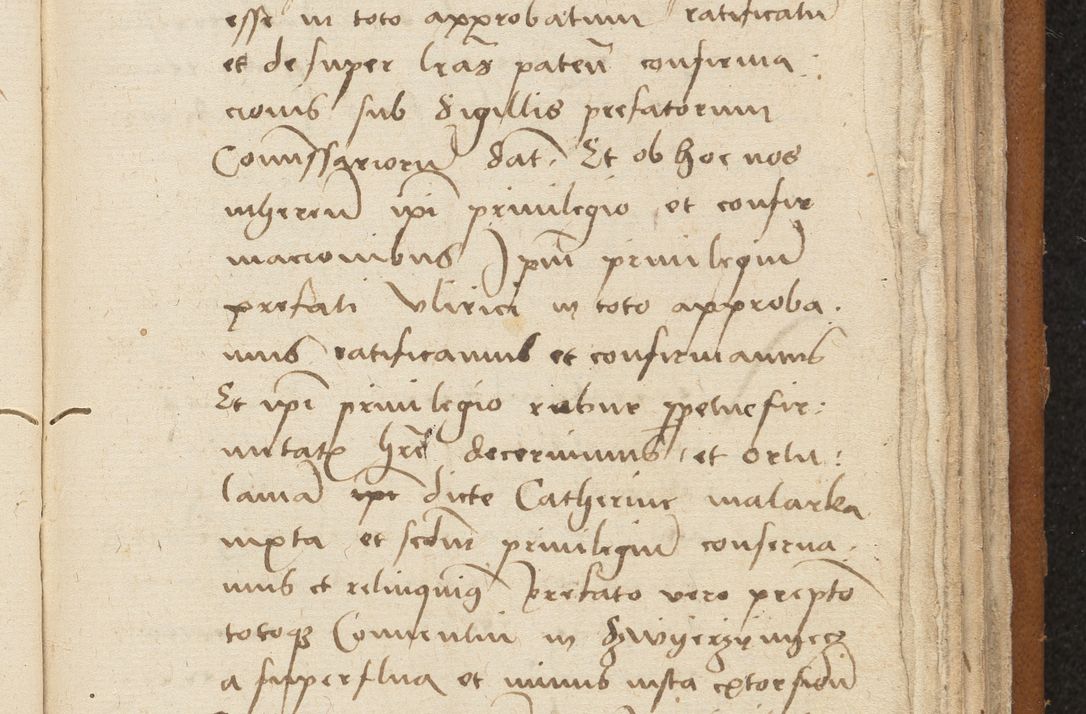 esse in toto approbatum ratificatū
et desuper lr̄as pateñ confirma
cionis sub sigillis prefatorum
Com̄issariorū dat̄. Et ob hoc nos
inhereñ ip̄i priuilegio et confir
macionibus p̄m priuilegiū
prefati Vlirici in toto approba.
mus ratificamus et confirmamus
Et ip̄i priuilegio robur ꝑpetue fir:
mitatꝭ hr̄e decernimus et ortu:
lanā ip̄e dicte Catherine malarka
iuxta et scdm̄ priuilegiū conserua.
mus et relinquimꝰ Prefato vero prep̄to
totoqꝫ Conuentui in
a superflua et minus iusta extorsiōn